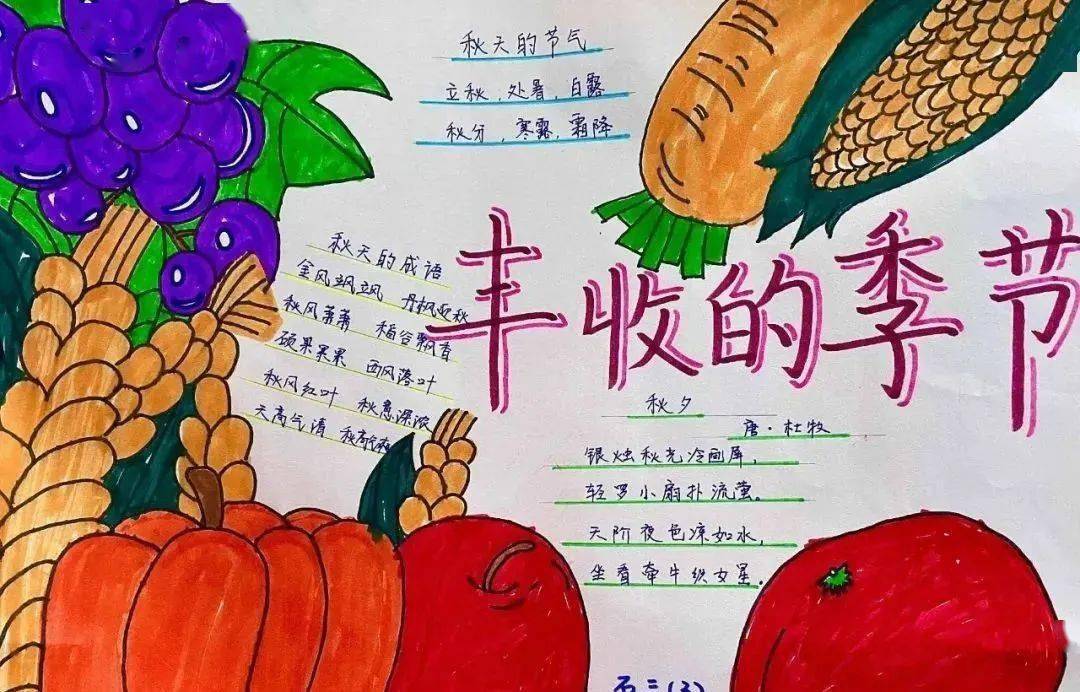 秋天的节气
立秋，处暑，白露
秋分，寒露，霜降
丰收的季节
秋天的成语
金风飒飒 丹枫迎秋
秋风萧萧 稻谷飘香
硕果累累 西风落叶
秋风红叶 秋意深浓
天高气清 秋高气爽
秋夕
唐·杜牧
银烛秋光冷画屏，
轻罗小扇扑流萤。
天阶夜色凉如水，
坐看牵牛织女星。